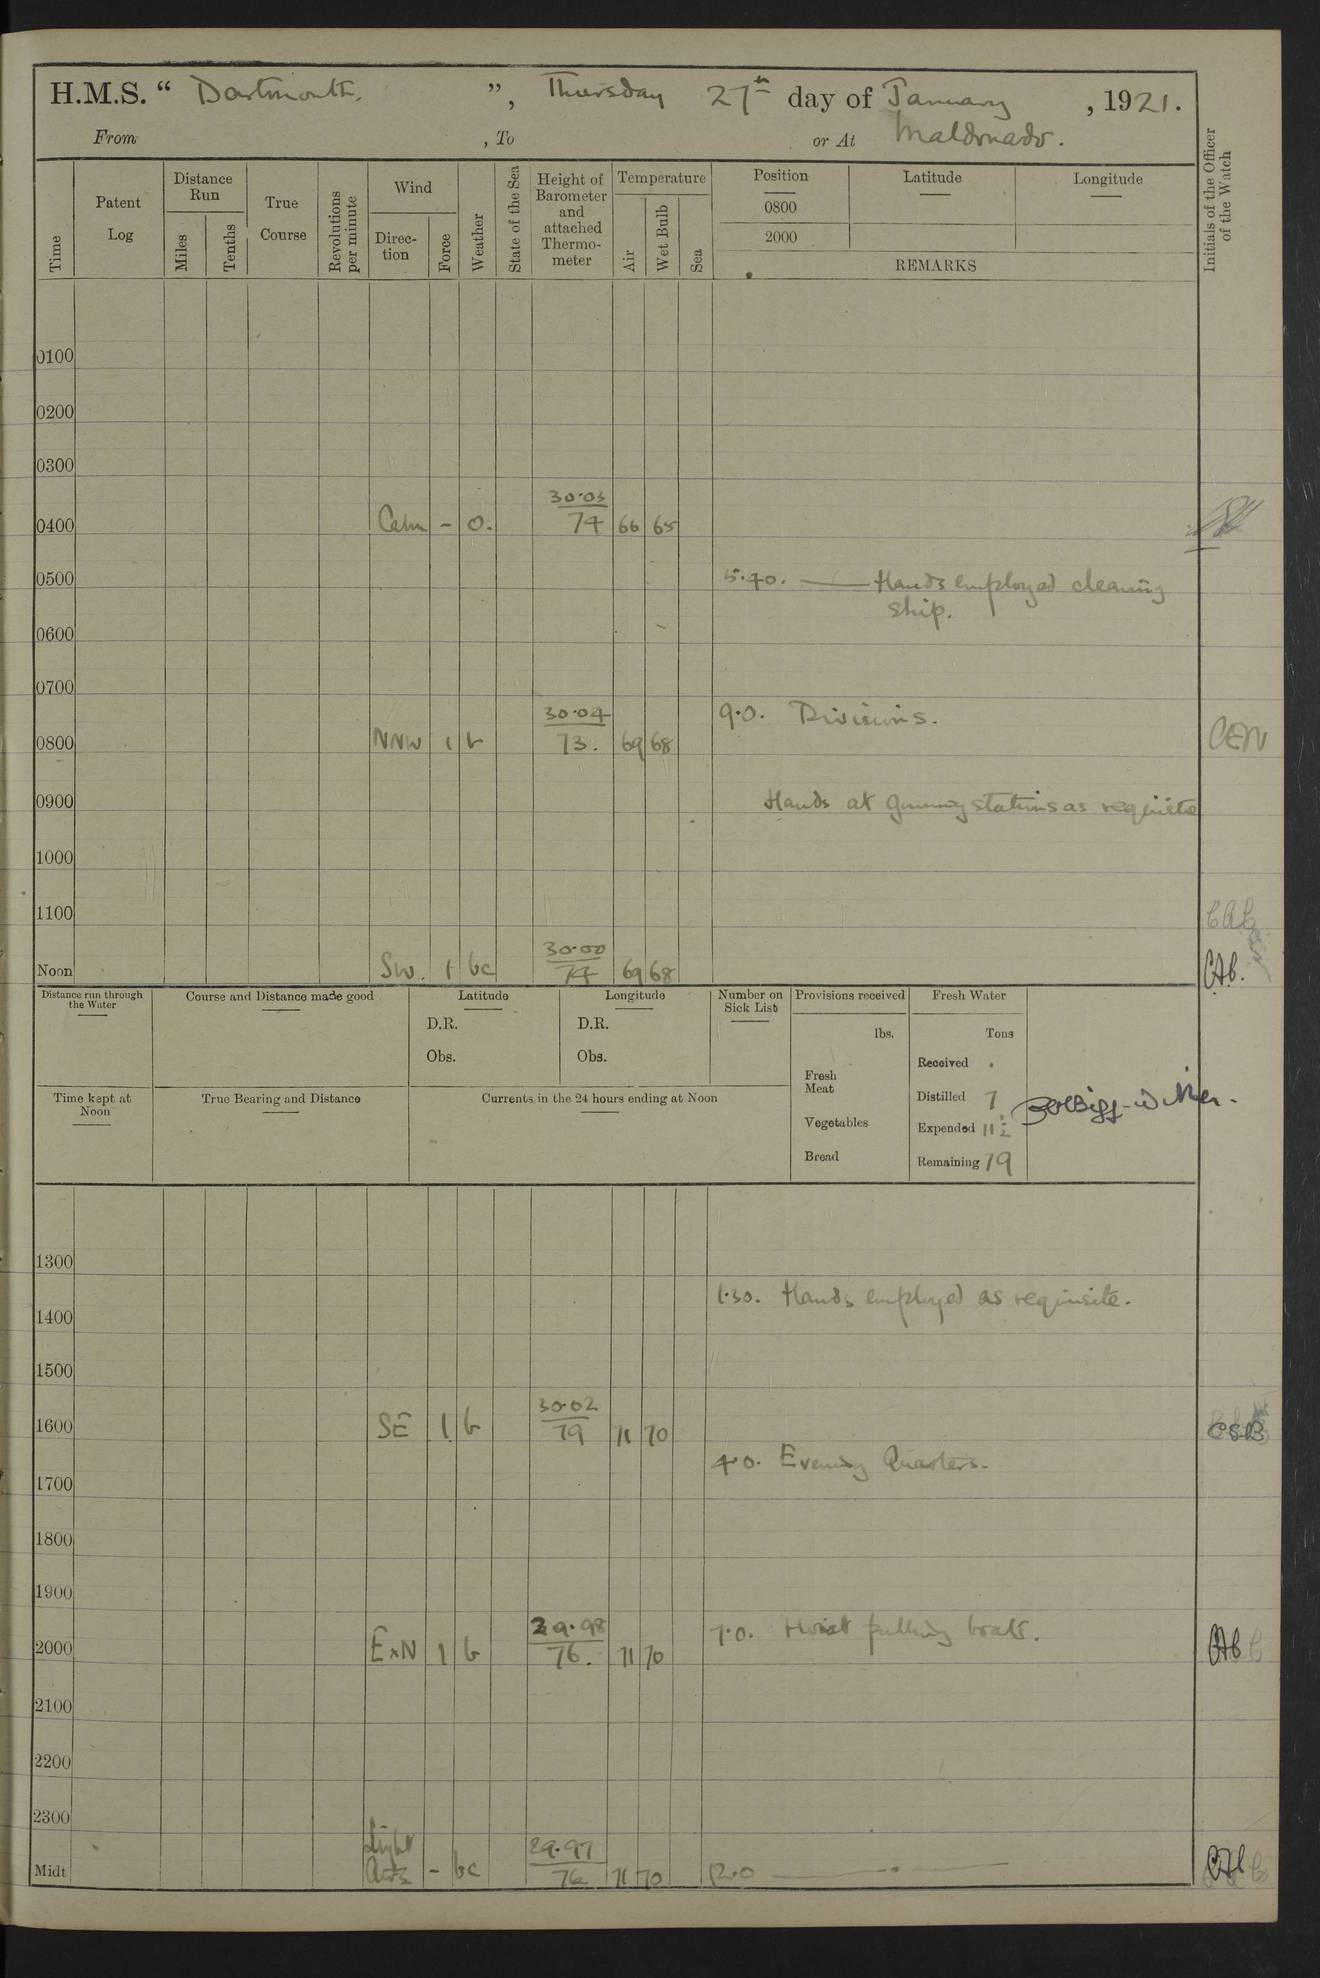 H.M.S. “ Dartmouth. ”, Thursday 27th day of January , 1921.
From , To or At Maldonado.
Time
Patent Log
Distance Run
Miles
Tenths
True Course
Revolutions per minute
Wind
Direc- tion
Force
Weather
State of the Sea
Height of Barometer and attached Thermo- meter
Temperature
Air
Wet Bulb
Sea
Position
0800
2000
Latitude
Longitude
REMARKS
Initials of the Officer of the Watch
0100
0200
0300
30.03
0400 Calm - o. 74 66 65
0500 5.40. Hands employed cleaning
ship.
0600
0700
30.04 9.0. Divisions.
0800 NNW 1 b 73. 69 68 CEN
0900 Hands at gunnery stations as requisite
1000
1100 CAB
30.00
Noon SW. 1 bc 74 69 68 CAB.
Distance run through the Water
Course and Distance made good
Latitude
D.R.
Obs.
Longitude
D.R.
Obs.
Number on Sick List
Provisions received
lbs.
Fresh Meat
Vegetables
Bread
Fresh Water
Tons
Received
Distilled 7
Expended 11½
Remaining 79
Time kept at Noon
True Bearing and Distance
Currents in the 24 hours ending at Noon
1300
1.30. Hands employed as requisite.
1400
1500
30.02
1600 SE 1 b 79 71 70 CSB
4.0. Evening Quarters.
1700
1800
1900
29.98 7.0. Hoist pulling boats.
2000 ExN 1 b 76. 71 70 CAB
2100
2200
2300
Light 29.97
Midt Airs - bc 76 71 70 12.0 CAB